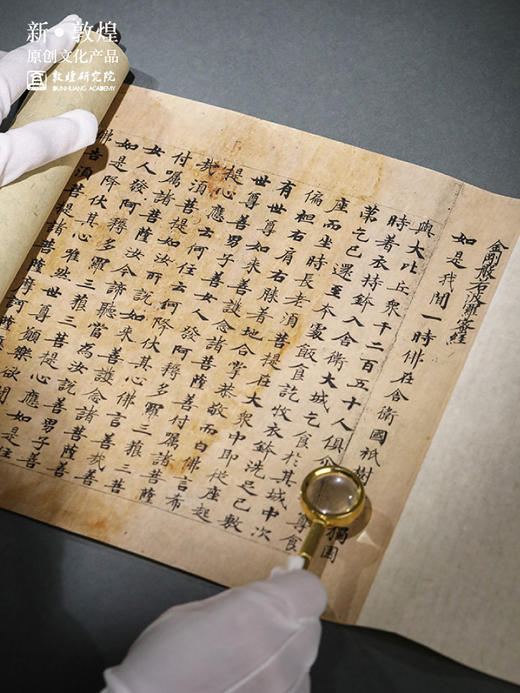 新·敦煌
原创文化产品
敦煌研究院
DUNHUANG ACADEMY
金剛般若波羅蜜經
如是我聞一時佛在舍衛國祇樹獨園
與大比丘衆千二百五十人俱尒尊食
時着衣持鉢入舍衛大城乞食於其城中次
第乞已還至本處飯食訖收衣鉢洗足已敷
座而坐時長老湏菩提在大衆中即從座起
偏袒右肩右膝着地合掌恭敬而白佛言希
有世尊如来善護念諸菩薩善付囑諸菩薩
世尊善男子善女人發阿耨多羅三藐三菩
提心應云何住云何降伏其心佛言善哉善
哉湏菩提如汝所說如来善護念諸菩薩善
付囑諸菩薩汝今諦聽當為汝說善男子善
女人發阿耨多羅三藐三菩提心應如是住
如是降伏其心唯然世尊願樂欲聞
佛告湏菩提諸菩薩摩訶薩